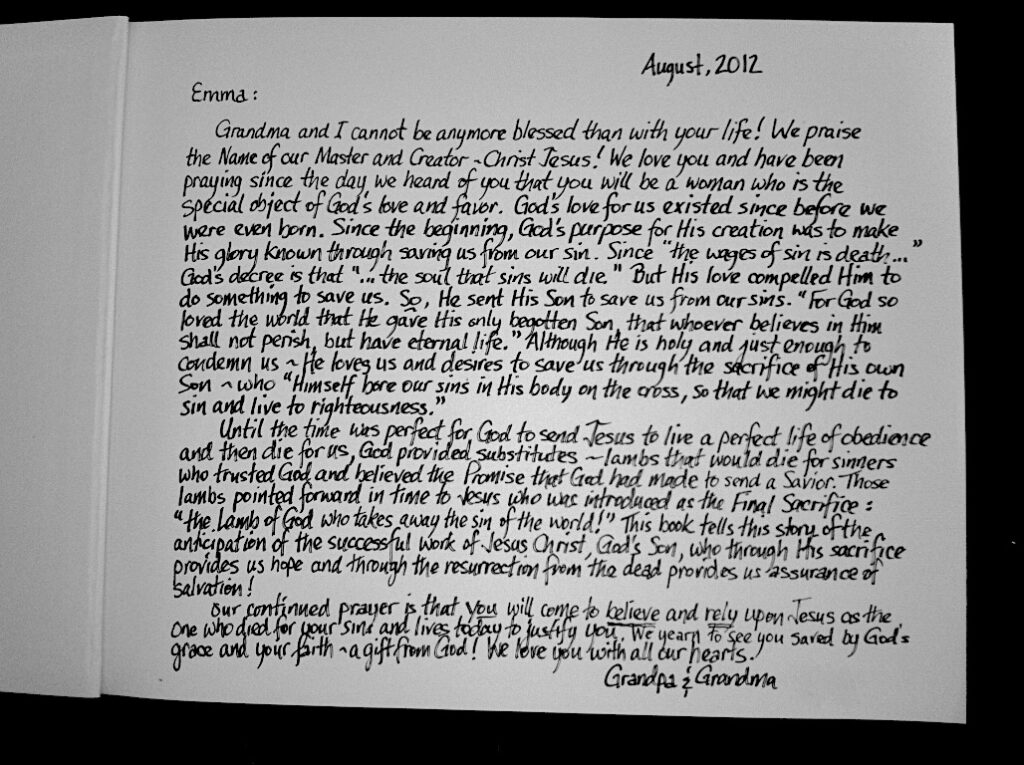 August, 2012
Emma:
Grandma and I cannot be anymore blessed than with your life! We praise
the Name of our Master and Creator ~ Christ Jesus! We love you and have been
praying since the day we heard of you that you will be a woman who is the
special object of God's love and favor. God's love for us existed since before we
were even born. Since the beginning, God's purpose for His creation was to make
His glory known through saving us from our sin. Since "the wages of sin is death..."
God's decree is that "...the soul that sins will die." But His love compelled Him to
do something to save us. So, He sent His Son to save us from our sins. "For God so
loved the world that He gave His only begotten Son, that whoever believes in Him
shall not perish, but have eternal life." Although He is holy and just enough to
condemn us ~ He loves us and desires to save us through the sacrifice of His own
Son ~ who "Himself bore our sins in His body on the cross, so that we might die to
sin and live to righteousness."
Until the time was perfect for God to send Jesus to live a perfect life of obedience
and then die for us, God provided substitutes ~ lambs that would die for sinners
who trusted God and believed the Promise that God had made to send a Savior. Those
lambs pointed forward in time to Jesus who was introduced as the Final Sacrifice :
"the Lamb of God who takes away the sin of the world!" This book tells this story of the
anticipation of the successful work of Jesus Christ, God's Son, who through His sacrifice
provides us hope and through the resurrection from the dead provides us assurance of
salvation!
Our continued prayer is that you will come to believe and rely upon Jesus as the
One who died for your sins and lives today to justify you. We yearn to see you saved by God's
grace and your faith ~ a gift from God! We love you with all our hearts.
Grandpa & Grandma